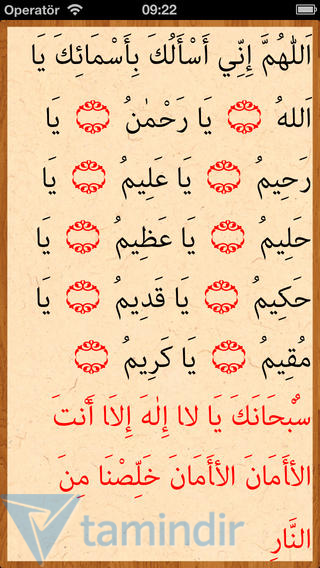 Operatör 09:22
اَللّٰهُمَّ إِنِّي أَسْأَلُكَ بِأَسْمَائِكَ يَا
اَللهُ يَا رَحْمٰنُ يَا
رَحِيمُ يَا عَلِيمُ يَا
حَلِيمُ يَا عَظِيمُ يَا
حَكِيمُ يَا قَدِيمُ يَا
مُقِيمُ يَا كَرِيمُ
سُبْحَانَكَ يَا لاا إِلٰهَ إِلاا أَنْتَ
الأأَمَانَ الأأَمَانَ خَلِّصْنَا مِنَ
النَّارِ
tamindir